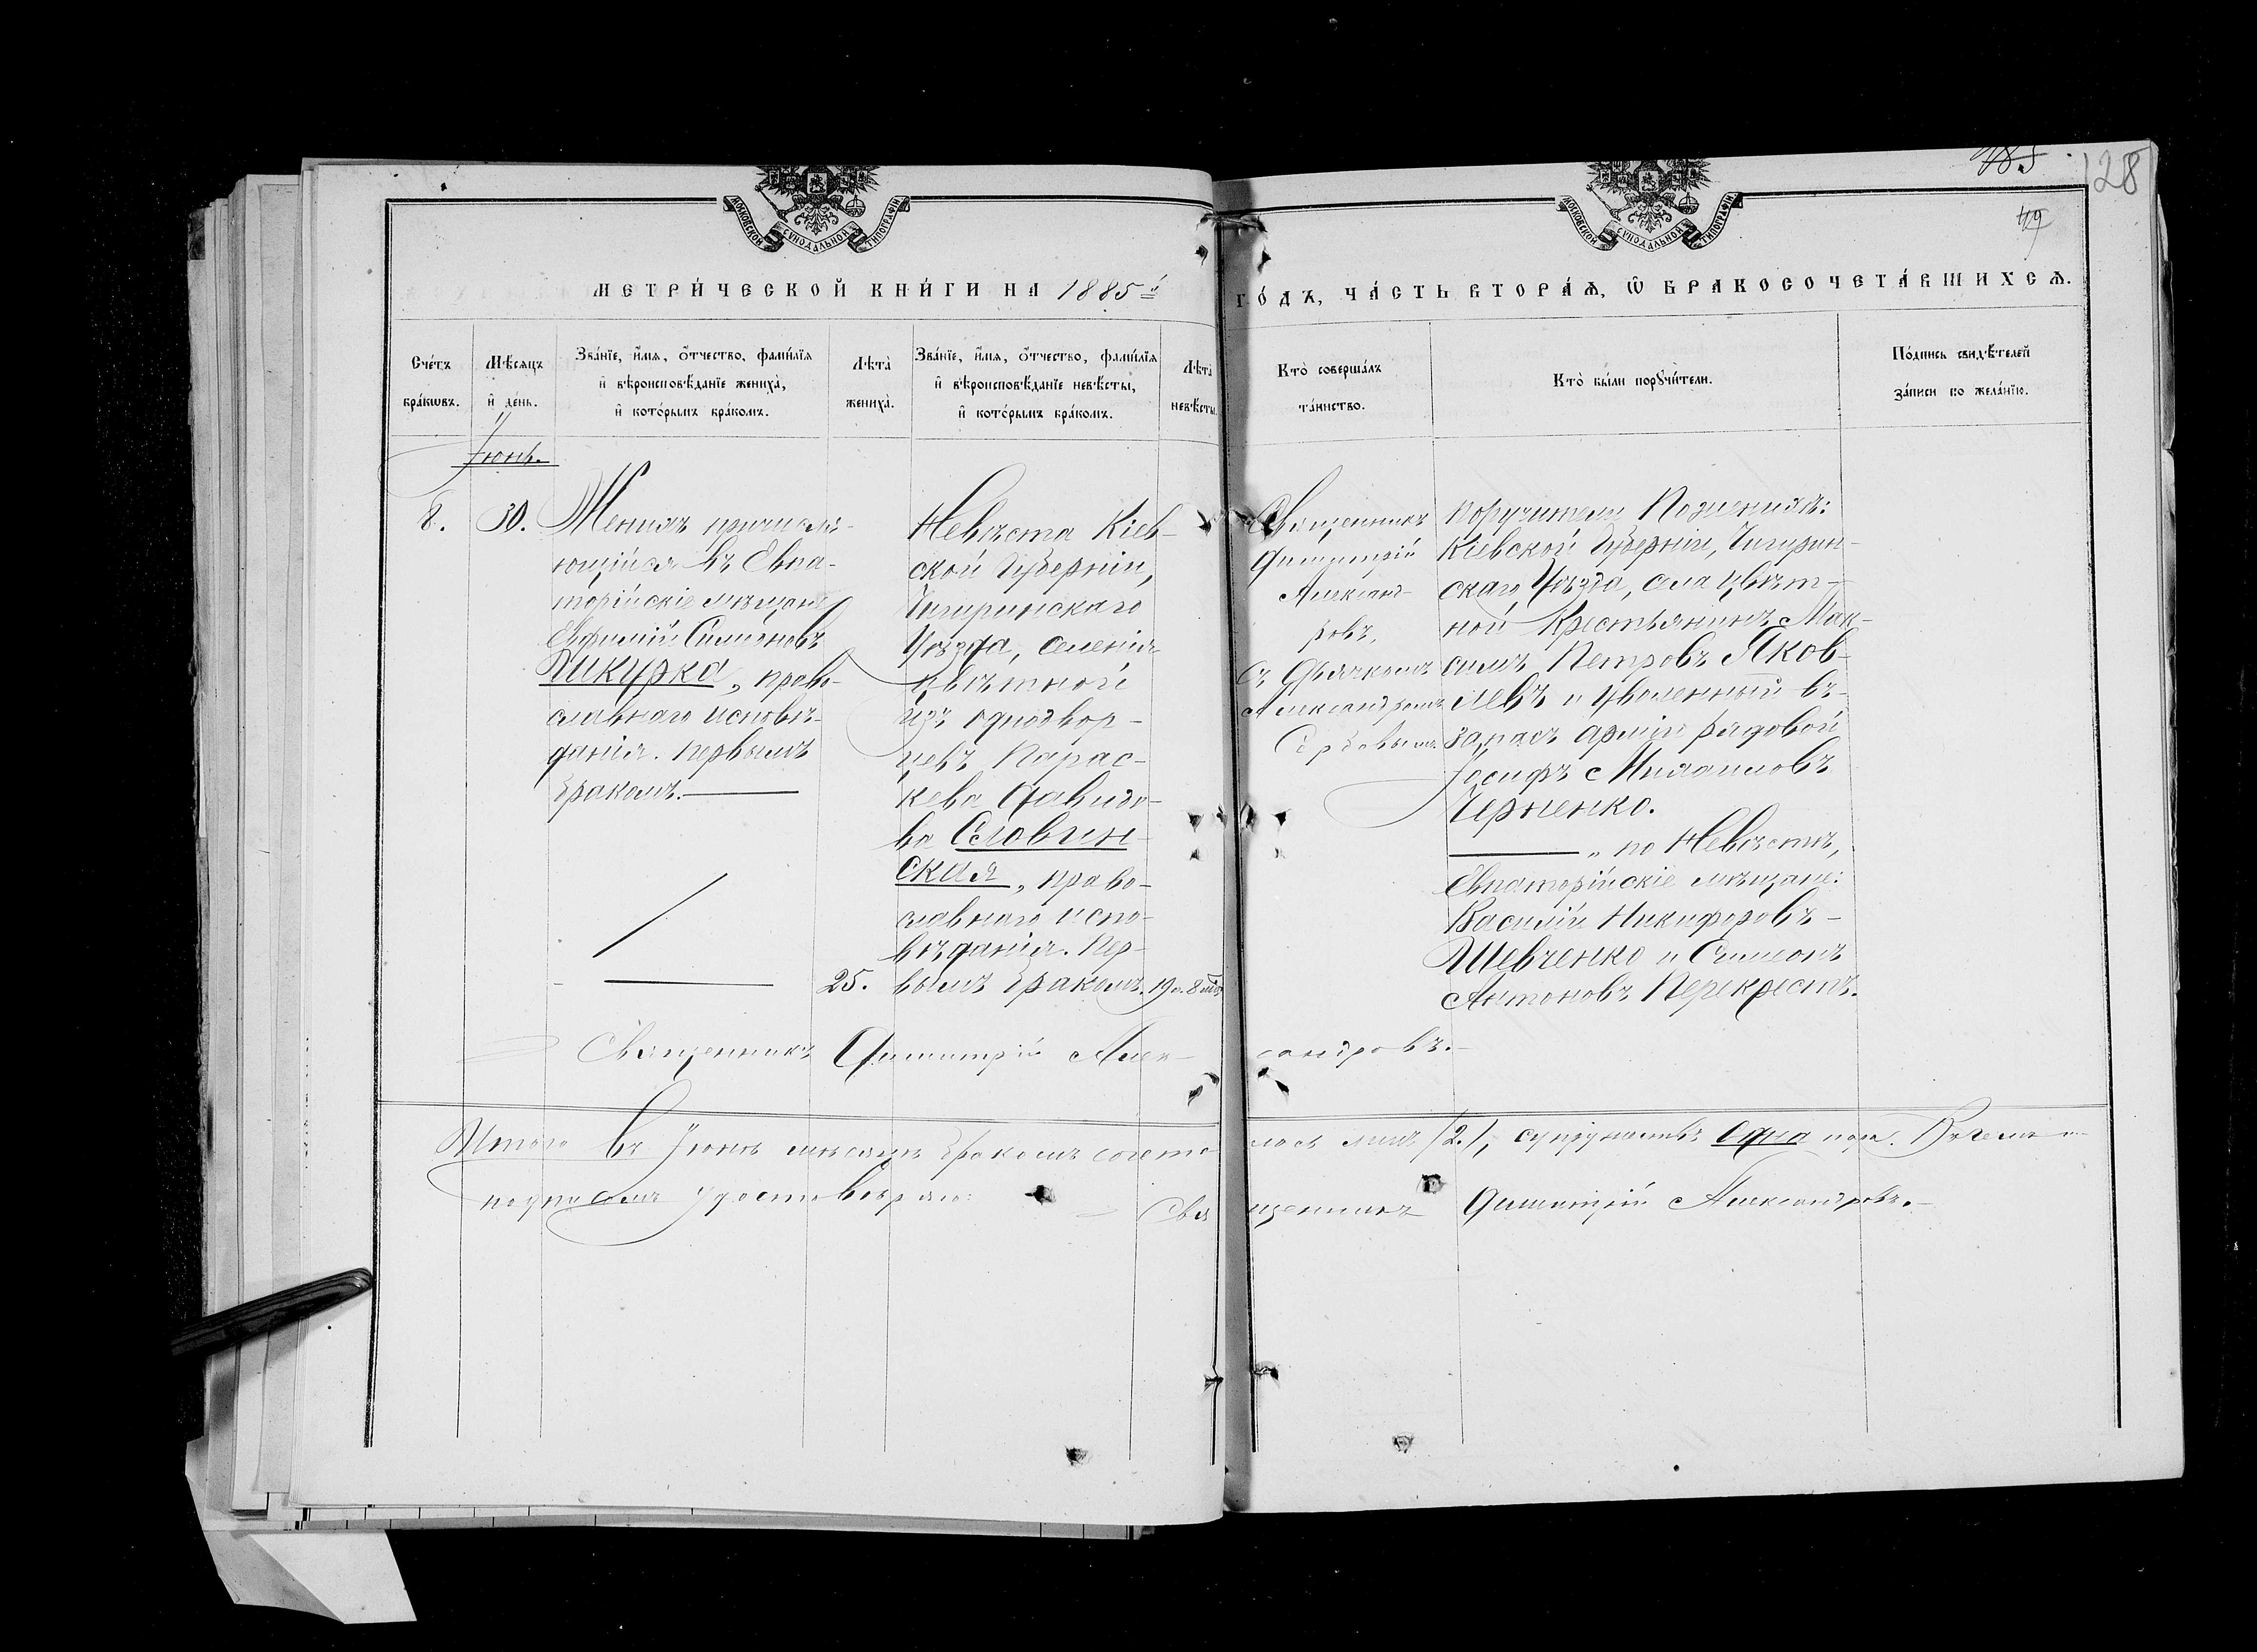 185
128
49
МОСКОВСКОЙ СѴНОДАЛЬНОЙ ТИПОГРАФІИ
МОСКОВСКОЙ СѴНОДАЛЬНОЙ ТИПОГРАФІИ
МЕТРИ́ЧЕСКОЙ КНИ́ГИ НА 1885й
ГО́ДЪ, ЧА́СТЬ ВТОРА́Ѧ, Ѡ БРАКОСОЧЕТА́ВШИХСѦ.
Сче́тъ
бра́кѡвъ.
Мѣ́сяцъ
и҆ де́нь.
Зва́нїе, и҆́мя, ѻ҆́тчество, фами́лїя
и҆ вѣроисповѣ́данїе жениха̀,
и҆ кото́рымъ бра́комъ.
Лѣ́та
жениха̀.
Зва́нїе, и҆́мя, ѻ҆́тчество, фами́лїя
и҆ вѣроисповѣ́данїе невѣ́сты,
и҆ кото́рымъ бра́комъ.
Лѣ́та
невѣ́сты.
Кто̀ соверша́лъ
та́инство.
Кто̀ бы́ли порꙋчи́тели.
По́дпись свидѣ́телей
за́писи по жела́нїю.
Іюнь.
8.
30.
Женихъ причисля-
ющійся въ Евпа-
торійскіе мѣщане
Евфимій Симеоновъ
Шикурка, право-
славнаго исповѣ-
данія. первымъ
бракомъ.
25.
Невѣста Кіев-
ской Губерніи,
Чигиринскаго
Уѣзда, селенія
Цвѣтной
изъ однодвор-
цевъ Парас-
кева Давидо-
ва Словин-
ская, право-
славнаго испо-
вѣданія. Пер-
вымъ бракомъ.
19 л. 8 м.
Священникъ
Димитрій
Александ-
ровъ,
Съ Дьячкомъ
Александромъ
поручители По женихѣ:
Кіевской Губерніи, Чигирин-
скаго Уѣзда, села Цвѣт-
ной Крестьянинъ Мак-
симъ Петровъ Яков-
левъ и Уволенный въ
запасъ арміи рядовой
Іосифъ Михаиловъ
Черненко.
„ по Невѣстѣ,
Евпаторійскіе мѣщане:
Василій Никифоровъ-
Шевченко и Симеонъ
Антоновъ Перекрестъ.
Священникъ Димитрій Александровъ.
Итого въ Іюнѣ мѣсяцѣ бракомъ сочеталось лицъ /2./, супружествъ Одна пара. В чемъ и
подписомъ удостовѣряю:
Священникъ Димитрій Александровъ.